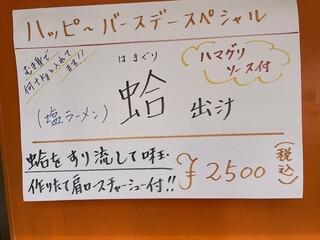 ハッピ～バースデースペシャル
はまぐり
(塩ラーメン) 蛤 出汁
ハマグリ
ソース付
蛤をすり流して味玉
作りたて肩ロースチャーシュー付!!
¥2500
(税込)